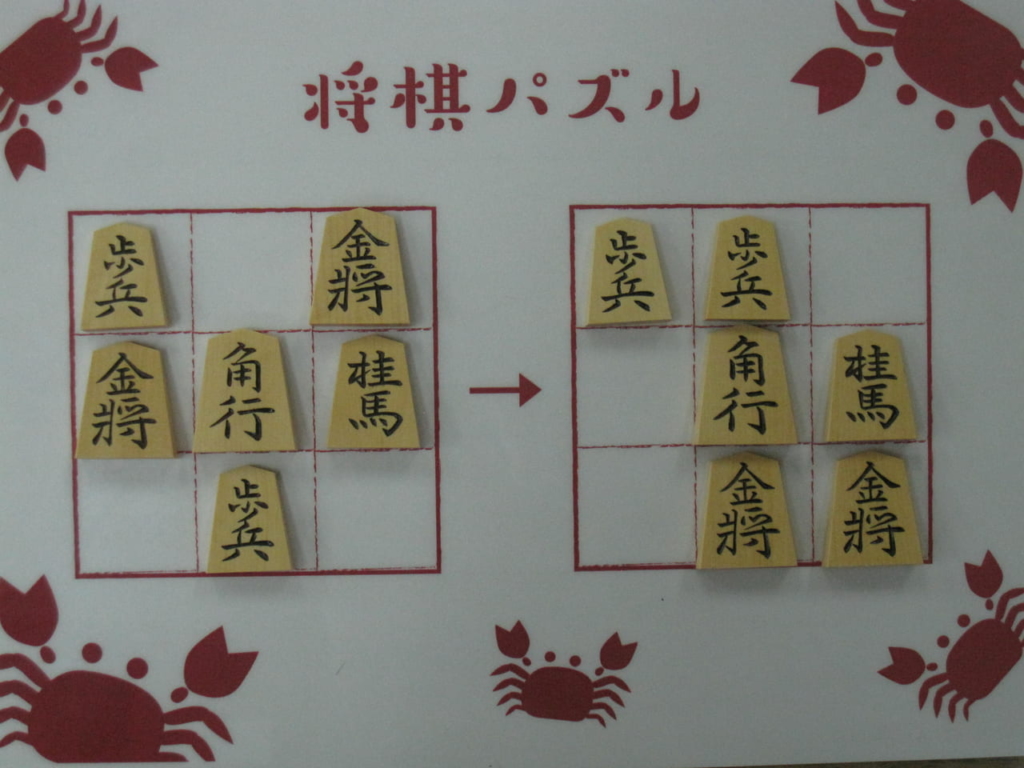 将棋パズル
歩兵 金将
金将 角行 桂馬
歩兵
歩兵 歩兵
角行 桂馬
金将 金将